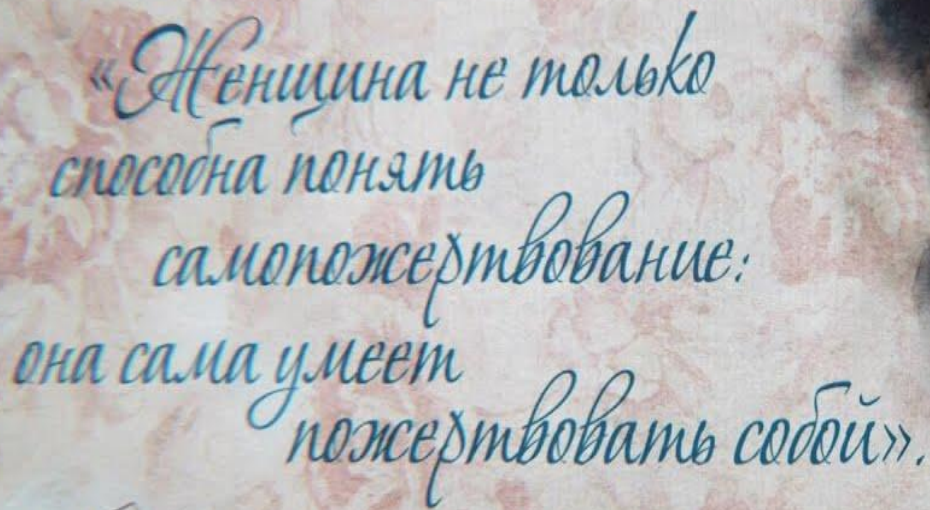 «Женщина не только
способна понять
самопожертвование:
она сама умеет
пожертвовать собой».